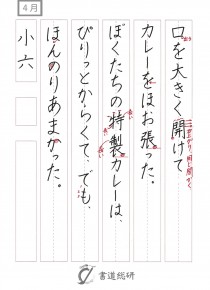 4月
口を大きく開けて
カレーをほお張った。
ぼくたちの特製カレーは、
ぴりっとからくて、でも、
ほんのりあまかった。
小六
書道総研